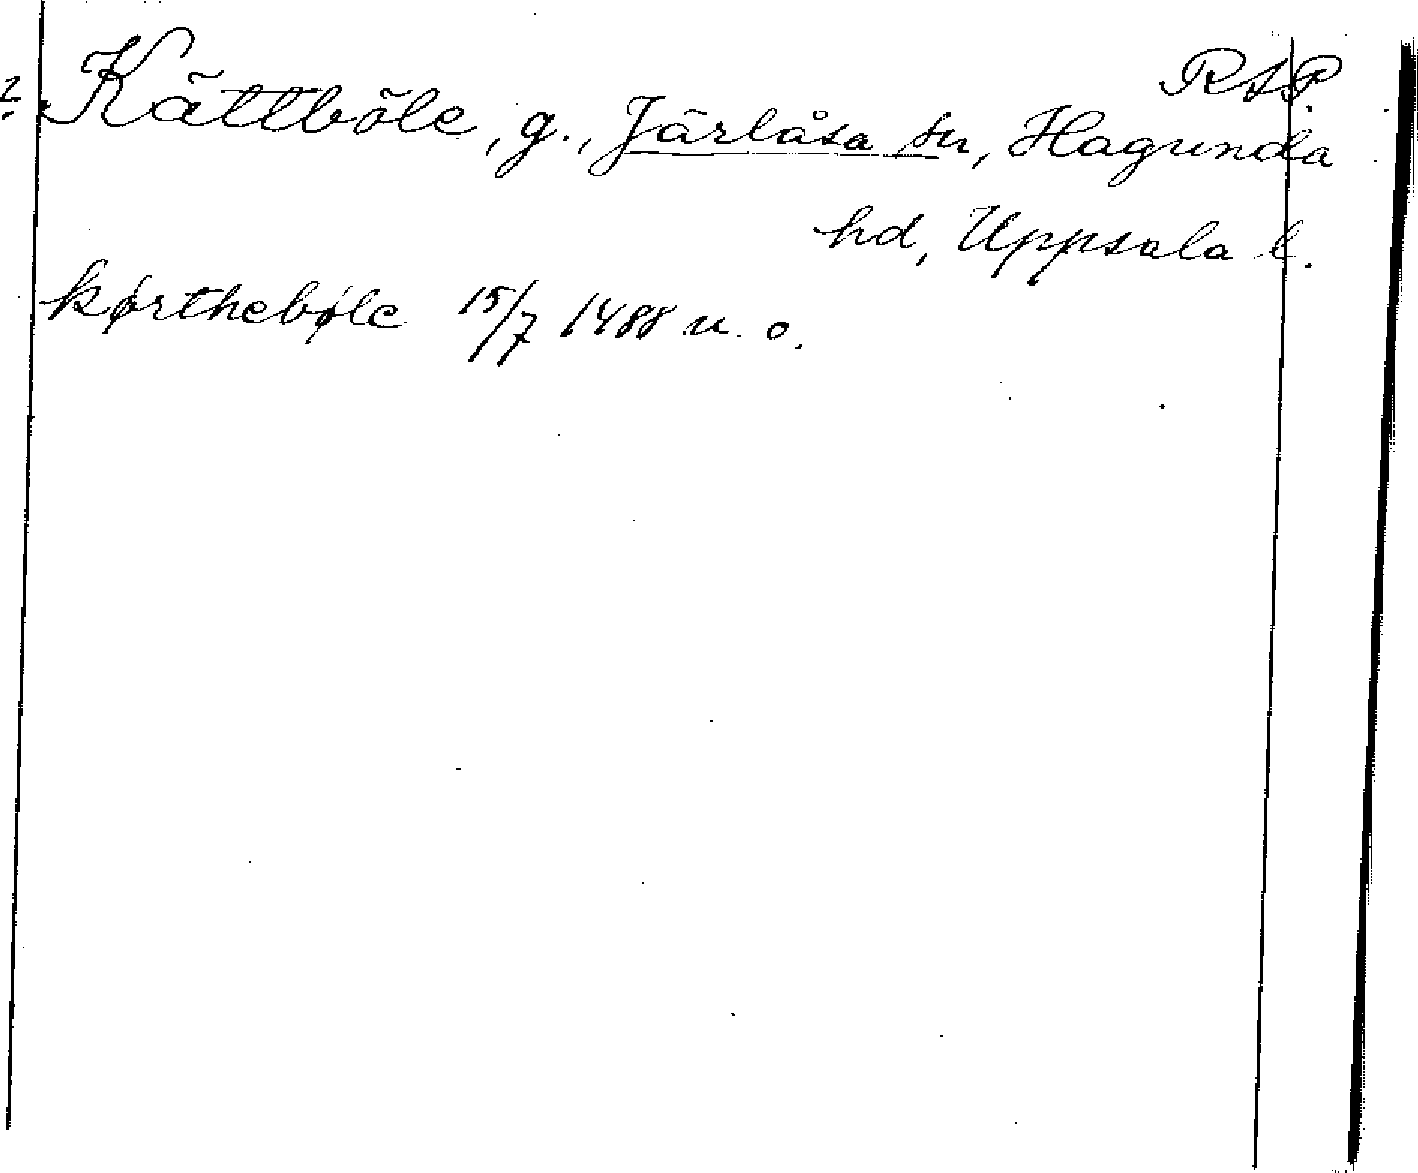 RAP.
? Kättböle, g., Järlåsa sn, Hagunda
hd, Uppsala l.
kørthebøle 15/7 1488 u. o.